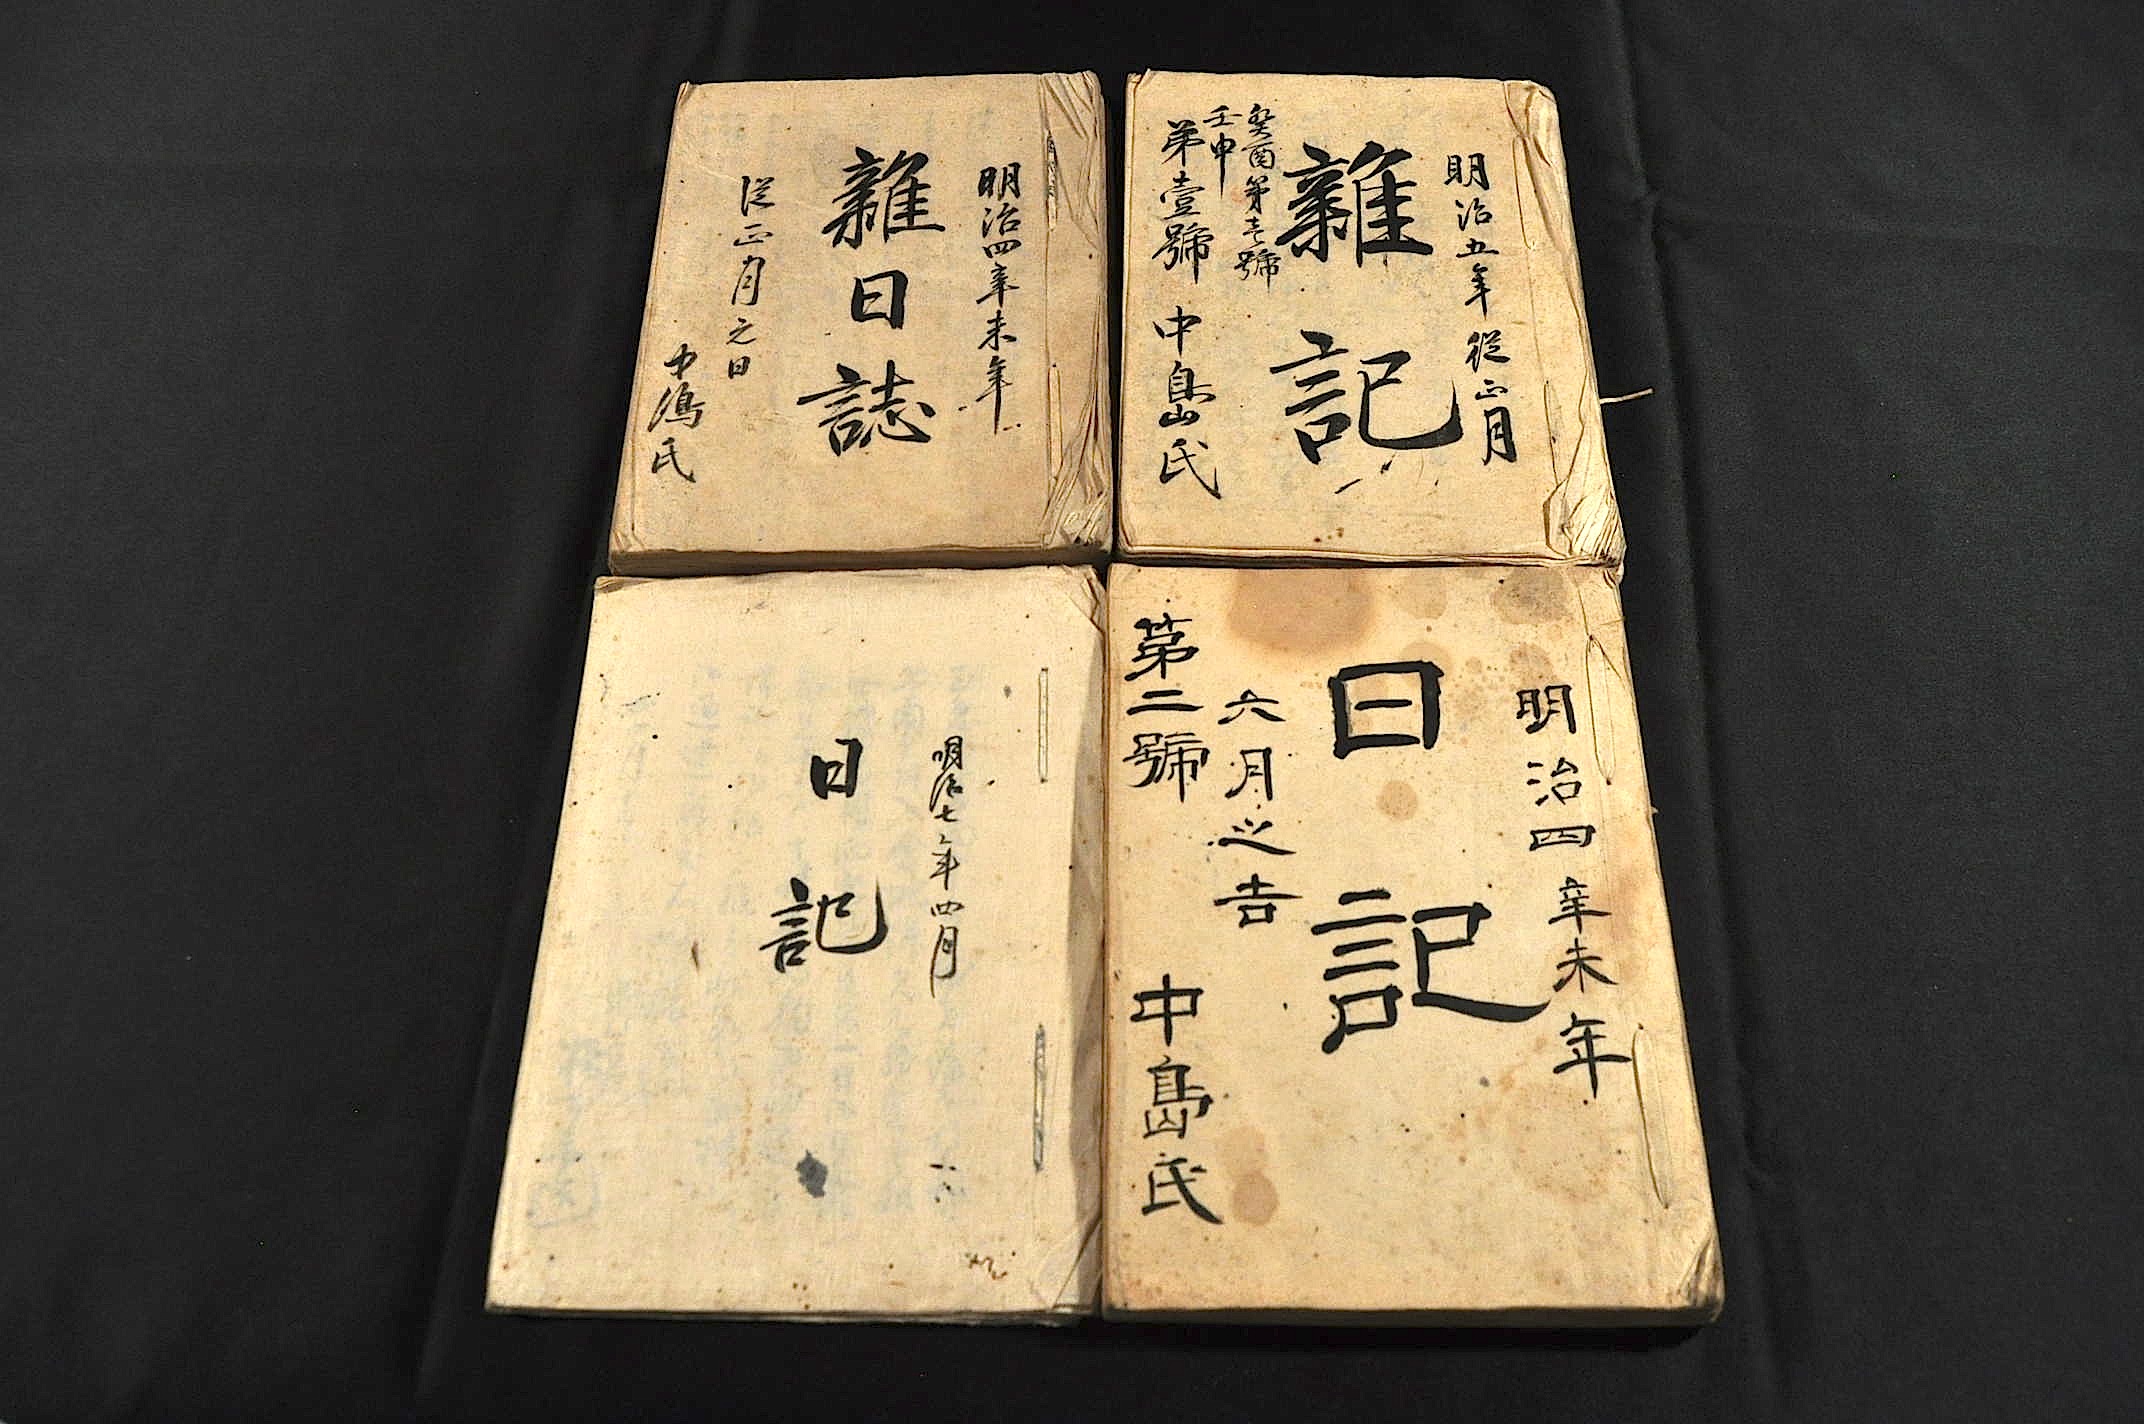 明治五年従正月
雜記
癸酉第壱號
壬申
第壹號 中島氏
明治四辛未年
雜日誌
従正月元日
中嶋氏
明治四辛未年
日記
六月之吉
第二號 中島氏
明治七年四月
日記